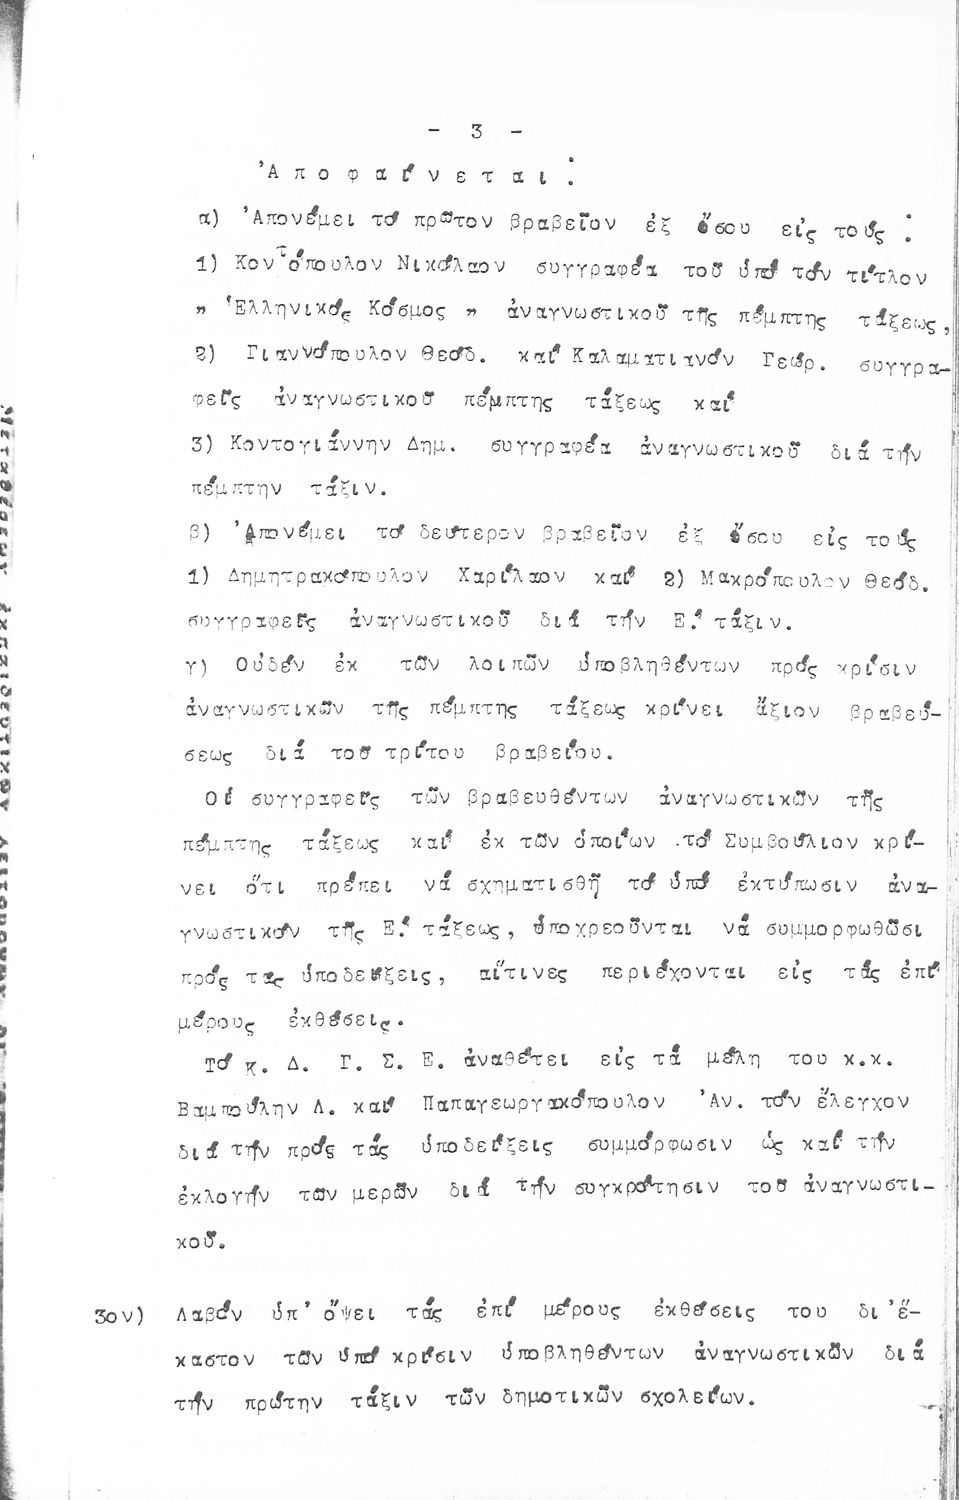 - 3 -
Ἀποφαίνεται :
α) Ἀπονέμει τό πρῶτον βραβεῖον ἐξ ἴσου εἰς τούς :
1) Κοντόπουλον Νικόλαον συγγραφέα τοῦ ὑπό τόν τίτλον
" Ἑλληνικός Κόσμος " ἀναγνωστικοῦ τῆς πέμπτης τάξεως,
2) Γιαννόπουλον Θεόδ. καί Καλαματιανόν Γεώρ. συγγρα-
φεῖς ἀναγνωστικοῦ πέμπτης τάξεως καί
3) Κοντογιάννην Δημ. συγγραφέα ἀναγνωστικοῦ διά τήν
πέμπτην τάξιν.
β) Ἀπονέμει τό δεύτερον βραβεῖον ἐξ ἴσου εἰς τούς
1) Δημητρακόπουλον Χαρίλαον καί 2) Μακρόπουλον Θεόδ.
συγγραφεῖς ἀναγνωστικοῦ διά τήν Ε.' τάξιν.
γ) Οὐδέν ἐκ τῶν λοιπῶν ὑποβληθέντων πρός κρίσιν
ἀναγνωστικῶν τῆς πέμπτης τάξεως κρίνει ἄξιον βραβεύ-
σεως διά τοῦ τρίτου βραβείου.
Οἱ συγγραφεῖς τῶν βραβευθέντων ἀναγνωστικῶν τῆς
πέμπτης τάξεως καί ἐκ τῶν ὁποίων τό Συμβούλιον κρί-
νει ὅτι πρέπει νά σχηματισθῇ τό ὑπό ἐκτύπωσιν ἀνα-
γνωστικόν τῆς Ε.' τάξεως, ὑποχρεοῦνται νά συμμορφωθῶσι
πρός τας ὑποδείξεις, αἵτινες περιέχονται εἰς τάς ἐπί
μέρους ἐκθέσεις.
Τό Κ. Δ. Γ. Σ. Ε. ἀναθέτει εἰς τά μέλη του κ.κ.
Βαμπούλην Λ. καί Παπαγεωργακόπουλον Ἀν. τόν ἔλεγχον
διά τήν πρός τάς ὑποδείξεις συμμόρφωσιν ὡς καί τήν
ἐκλογήν τῶν μερῶν διά τήν συγκρότησιν τοῦ ἀναγνωστι-
κοῦ.
3ον) Λαβόν ὑπ' ὄψει τάς ἐπί μέρους ἐκθέσεις του δι' ἕ-
καστον τῶν ὑπό κρίσιν ὑποβληθέντων ἀναγνωστικῶν διά
τήν πρώτην τάξιν τῶν δημοτικῶν σχολείων.